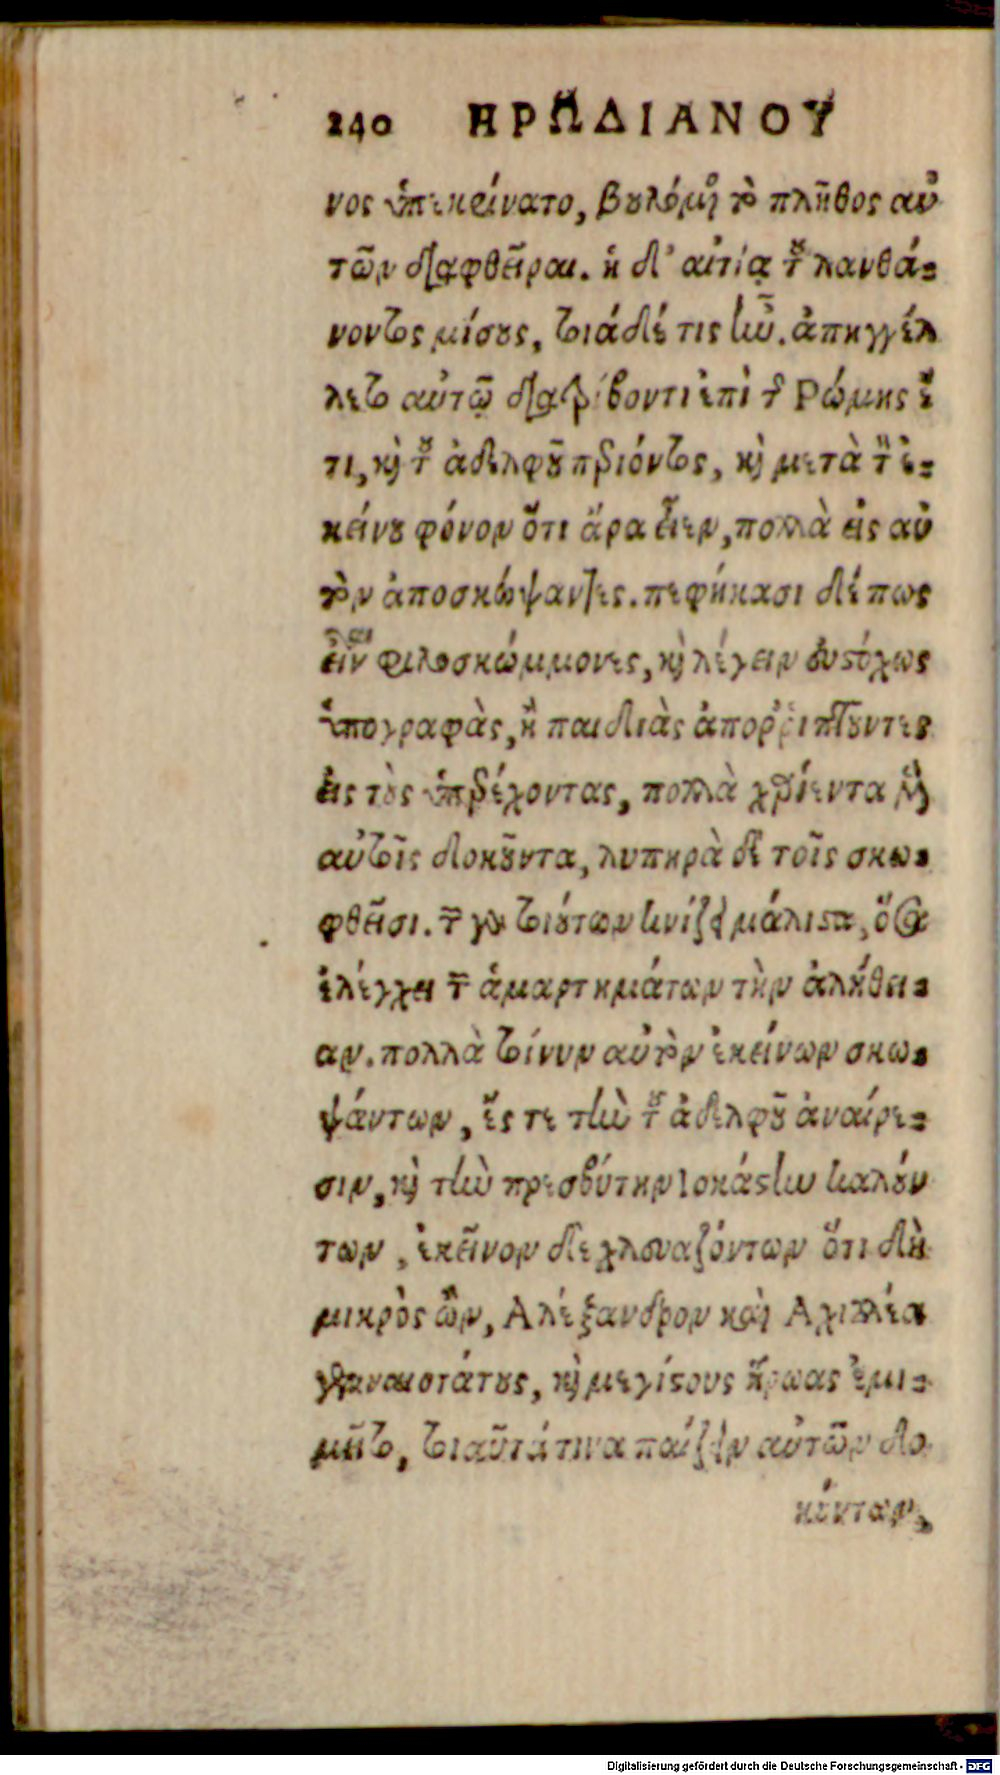 240 ΗΡΩΔΙΑΝΟΥ
νος ὑπεκρίνατο, βουλόμενος τὸ πλῆθος αὐ
τῶν διαφθεῖραι. ἡ δ' αἰτία τοῦ λανθά=
νοντος μίσους, τοιάδέ τις ἦν. ἀπηγγέλ
λετο αὐτῷ διατρίβοντι ἐπὶ τῆς Ρώμης ἔ
τι, καὶ τοῦ ἀδελφοῦ περιόντος, καὶ μετὰ τὸν ἐ=
κείνου φόνον ὅτι ἄρα εἶεν, πολλὰ εἰς αὐ
τὸν ἀποσκώψαντες. πεφήκασι δέ πως
εἶναι φιλοσκώμμονες, καὶ λέγειν εὐστόχως
ὑπογραφὰς, ἢ παιδιὰς ἀπορῥιπτοῦντες
εἰς τοὺς ὑπερέχοντας, πολλὰ χαρίεντα μὲν
αὐτοῖς δοκοῦντα, λυπηρὰ δὲ τοῖς σκω=
φθεῖσι. τῶν γὰρ τοιούτων κνίζει μάλιστα, ὅσα
ἐλέγχει τῶν ἁμαρτημάτων τὴν ἀλήθει=
αν. πολλὰ τοίνυν αὐτὸν ἐκείνων σκω=
ψάντων, ἔς τε τὴν τοῦ ἀδελφοῦ ἀναίρε=
σιν, καὶ τὴν πρεσβύτην Ιοκάστην καλούν
των, ἐκεῖνον δε χλευαζόντων ὅτι δὴ
μικρὸς ὢν, Αλέξανδρον καὶ Αχιλλέα
γενναιοτάτους, καὶ μεγίστους ἥρωας ἐμι=
μεῖτο, τοιαῦτά τινα παίζειν αὐτῶν δο
κούντων,
Digitalisierung gefördert durch die Deutsche Forschungsgemeinschaft - DFG